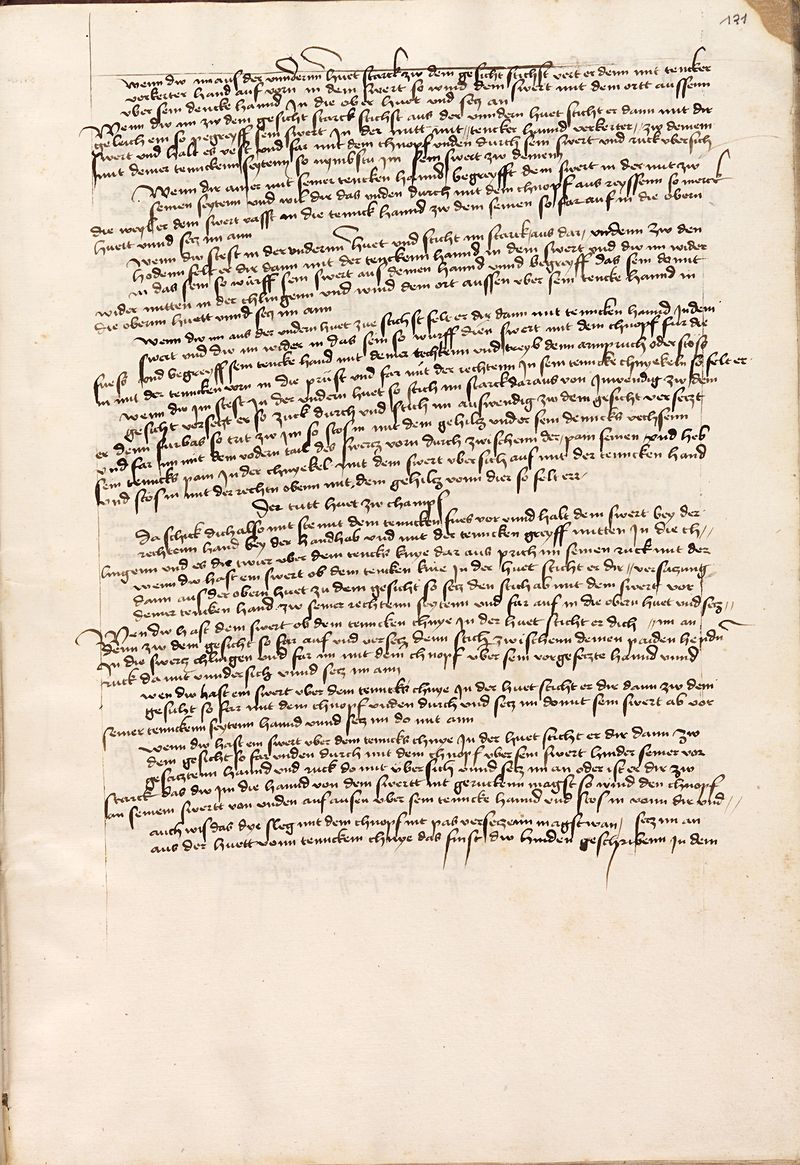 171
Wenn dw im aus der vnndernn huet starck zw dem gesicht stichst vert er denn mit tencker
verkerter hand auf vorn in dem swert so wind dem swert mit dem ortt aussenn
vber sein dencke hannd In die ober huet vnd secz an
Wenn dw im zw dem gesicht starck stichst aus der vnndern huet sticht er dann mit dir
geleich ein so pegreyff sein swert In der mitt mit tencker hannd verkerter zw deinem
swert vnd halt es vest vnd far mit dem chnopf vnden durch sein swert vnd ruck vbersich
mit deiner tennckenn seyttenn so nymbstu im sein swert zw deinem
Wenn dir ainer mit seiner tencken hannd begreyfft dein swert in der mit zw
seinen seyttenn vnd wil dir das vnden durch mit dem chnopf aus reyssenn so merck
die weyl er dem swert vasst in die tennck hannd zw dem seinen so far auf in die obern
huett vnnd secz im ann
Wenn dw stest in der vndernn huet vnd sticht im starck aus dar vndenn zw den
hodenn felt er dir dann mit der tenckenn hannd in dein swert vnd dw im wider
in das sein so würff sein swert aus deinen hannd vnnd begreyff das sein do mit
wider mitten in der chlingenn vnd wind dem ort aussen vber sein tencke hannd in
die obernn huett vnnd secz im ann
Wenn dw im aus der vndern huet zue stichst felt er dir dann mit tenncken hannd In dein
swert vnd dw im wider in das sein so würff dein swert mit dem chnopf für die
fues vnd begreyff sein tencke hand mit deiner rechtenn vnd treyb denn armpruch oder stos
in mit der tenncken vorn in die prüst vnd far mit der rechtenn In sein tenncke chnyekeln so felt er
Wenn dw im stest in der vndern huet so stich im starck daraus von Inwendig zw dem
gesicht verseczt er so zuck durch vnd stich im auswendig zw dem gesicht verseczt
er denn fürbas so trit zw im so stos in mit dem gehilz vnder sein dencks vechsenn
vnd far im mit dem vodern tail des swercz vorn durch zwischenn der pain seinen vnd heb
sein tenncks pain In der chnyekel mit dem swert vbersich auf mit der tenncken hand
vnd stos in mit der rechtn obenn mit dem gehilz vonn dier so felt err
Der tritt huet zw champf
Da schick dich also mit stee mit dem tenncken fues vor vnnd halt dein swert bey der
rechtenn hand bey der handhab vnd mit der tenncken greyff mitten In die ch
lingenn vnd es dir twier vber dem tencks knye dar aus prich im seinen ruck mit der
wenn dw hast ein swert ob dem tencken knie in der huet sticht er dir versaczung
dann aus der obern huet zu dem gesicht so secz den stich ab mit dem swert vor
deiner tencken hand zw seiner rechtenn seyttenn vnd far auf in die obern huet vnd secz
Wenn dw hast dein swert ob dem tenncken chnye In der huet sticht er dich im an
denn zw dem gesicht so far auf vnd versecz denn stich zwischenn deinen paiden hendn
In die swercz chlingen vnd far im mit dem chnopf vber sein vorgeseczte hannd vnnd
ruck da mit vnndersich vnnd secz im ann
Wen dw hast ein swert vber dem tenncks chnye In der huet sticht er dir dann zw dem
gesicht so far mit dem chnopf vnden durch vnd secz im domit sein swert ab vor
seiner tennckenn seyttenn hannd vnnd secz im do mit ann
Wenn dw hast ein swert vber dem tenncks chnye In der huet sticht er dir dann zw
dem gesicht so far vnden durch mit dem chnopf vber sein swert hinder seiner vor
gesacztenn hannd vnd ruck do mit vbersich vnnd secz im an oder ist er dir zw
starck das dw im die hannd von dem swertt nit geruckenn magst so wind den chnopf
an seinem swertt von vnden auf aussen vber sein tenncke hannd vnd stos in vonn dir vnd
auch wis das dye sleg mit dem chnopf nit pas verseczenn magst wan secz im an
aus der huett vonn tennckem chnye das finst dw hinden geschribenn In dem